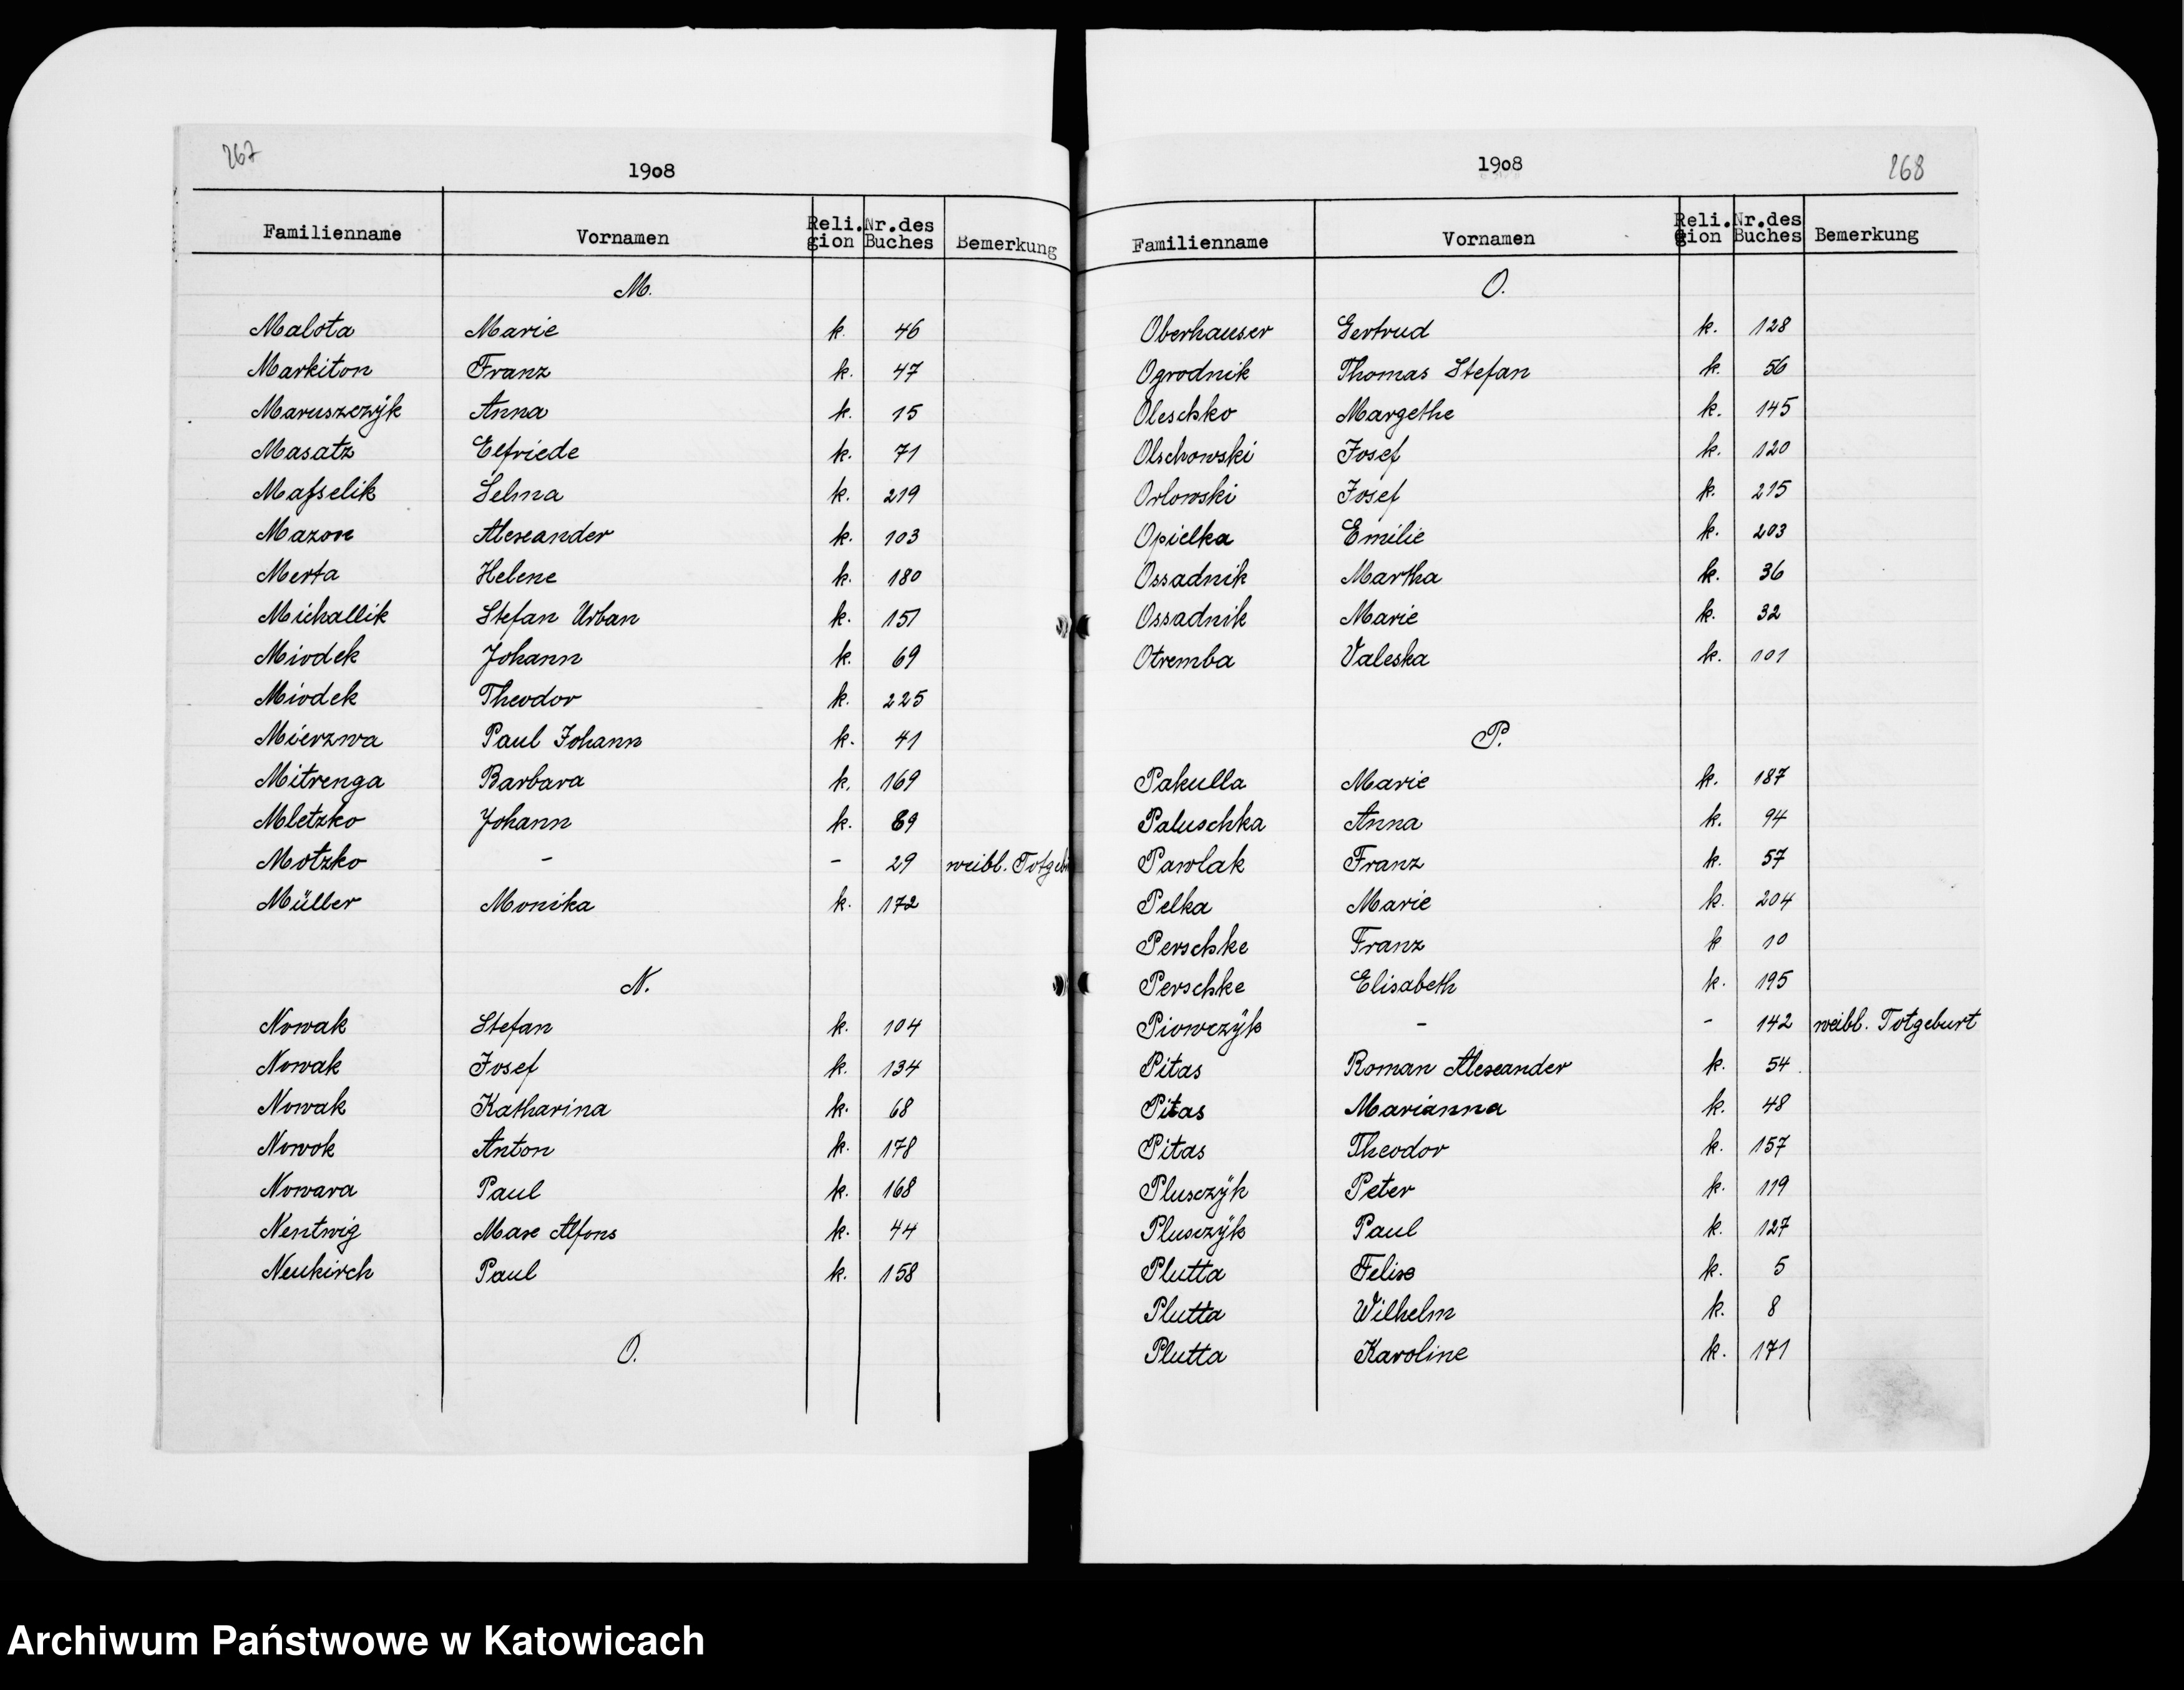 267
1908
Familienname Vornamen Reli.gion Nr.des Buches Bemerkung
M.
Malota Marie k. 46
Markiton Franz k. 47
Maruszczÿk Anna k. 15
Masatz Elfriede k. 71
Maſselik Selma k. 219
Mazon Alexander k. 103
Merta Helene k. 180
Michallik Stefan Urban k. 151
Miodek Johann k. 69
Miodek Theodor k. 225
Mierzwa Paul Johann k. 41
Mitrenga Barbara k. 169
Mletzko Johann k. 89
Motzko - - 29 weibl.
Müller Monika k. 172
N.
Nowak Stefan k. 104
Nowak Josef k. 134
Nowak Katharina k. 68
Nowok Anton k. 178
Nowara Paul k. 168
Nentwig Max Alfons k. 44
Neukirch Paul k. 158
O.
268
1908
Familienname Vornamen Reli.gion Nr.des Buches Bemerkung
O.
Oberhauser Gertrud k. 128
Ogrodnik Thomas Stefan k. 56
Oleschko Margethe k. 145
Olschowski Josef k. 120
Orlowski Josef k. 215
Opielka Emilie k. 203
Ossadnik Martha k. 36
Ossadnik Marie k. 32
Otremba Valeska k. 101
P.
Pakulla Marie k. 187
Paluschka Anna k. 94
Pawlak Franz k. 57
Pelka Marie k. 204
Perschke Franz k 10
Perschke Elisabeth k. 195
Piowczÿk - - 142 weibl. Totgeburt
Pitas Roman Alexander k. 54
Pitas Marianna k. 48
Pitas Theodor k. 157
Plusczÿk Peter k. 119
Plusczÿk Paul k. 127
Plutta Felix k. 5
Plutta Wilhelm k. 8
Plutta Karoline k. 171
Archiwum Państwowe w Katowicach